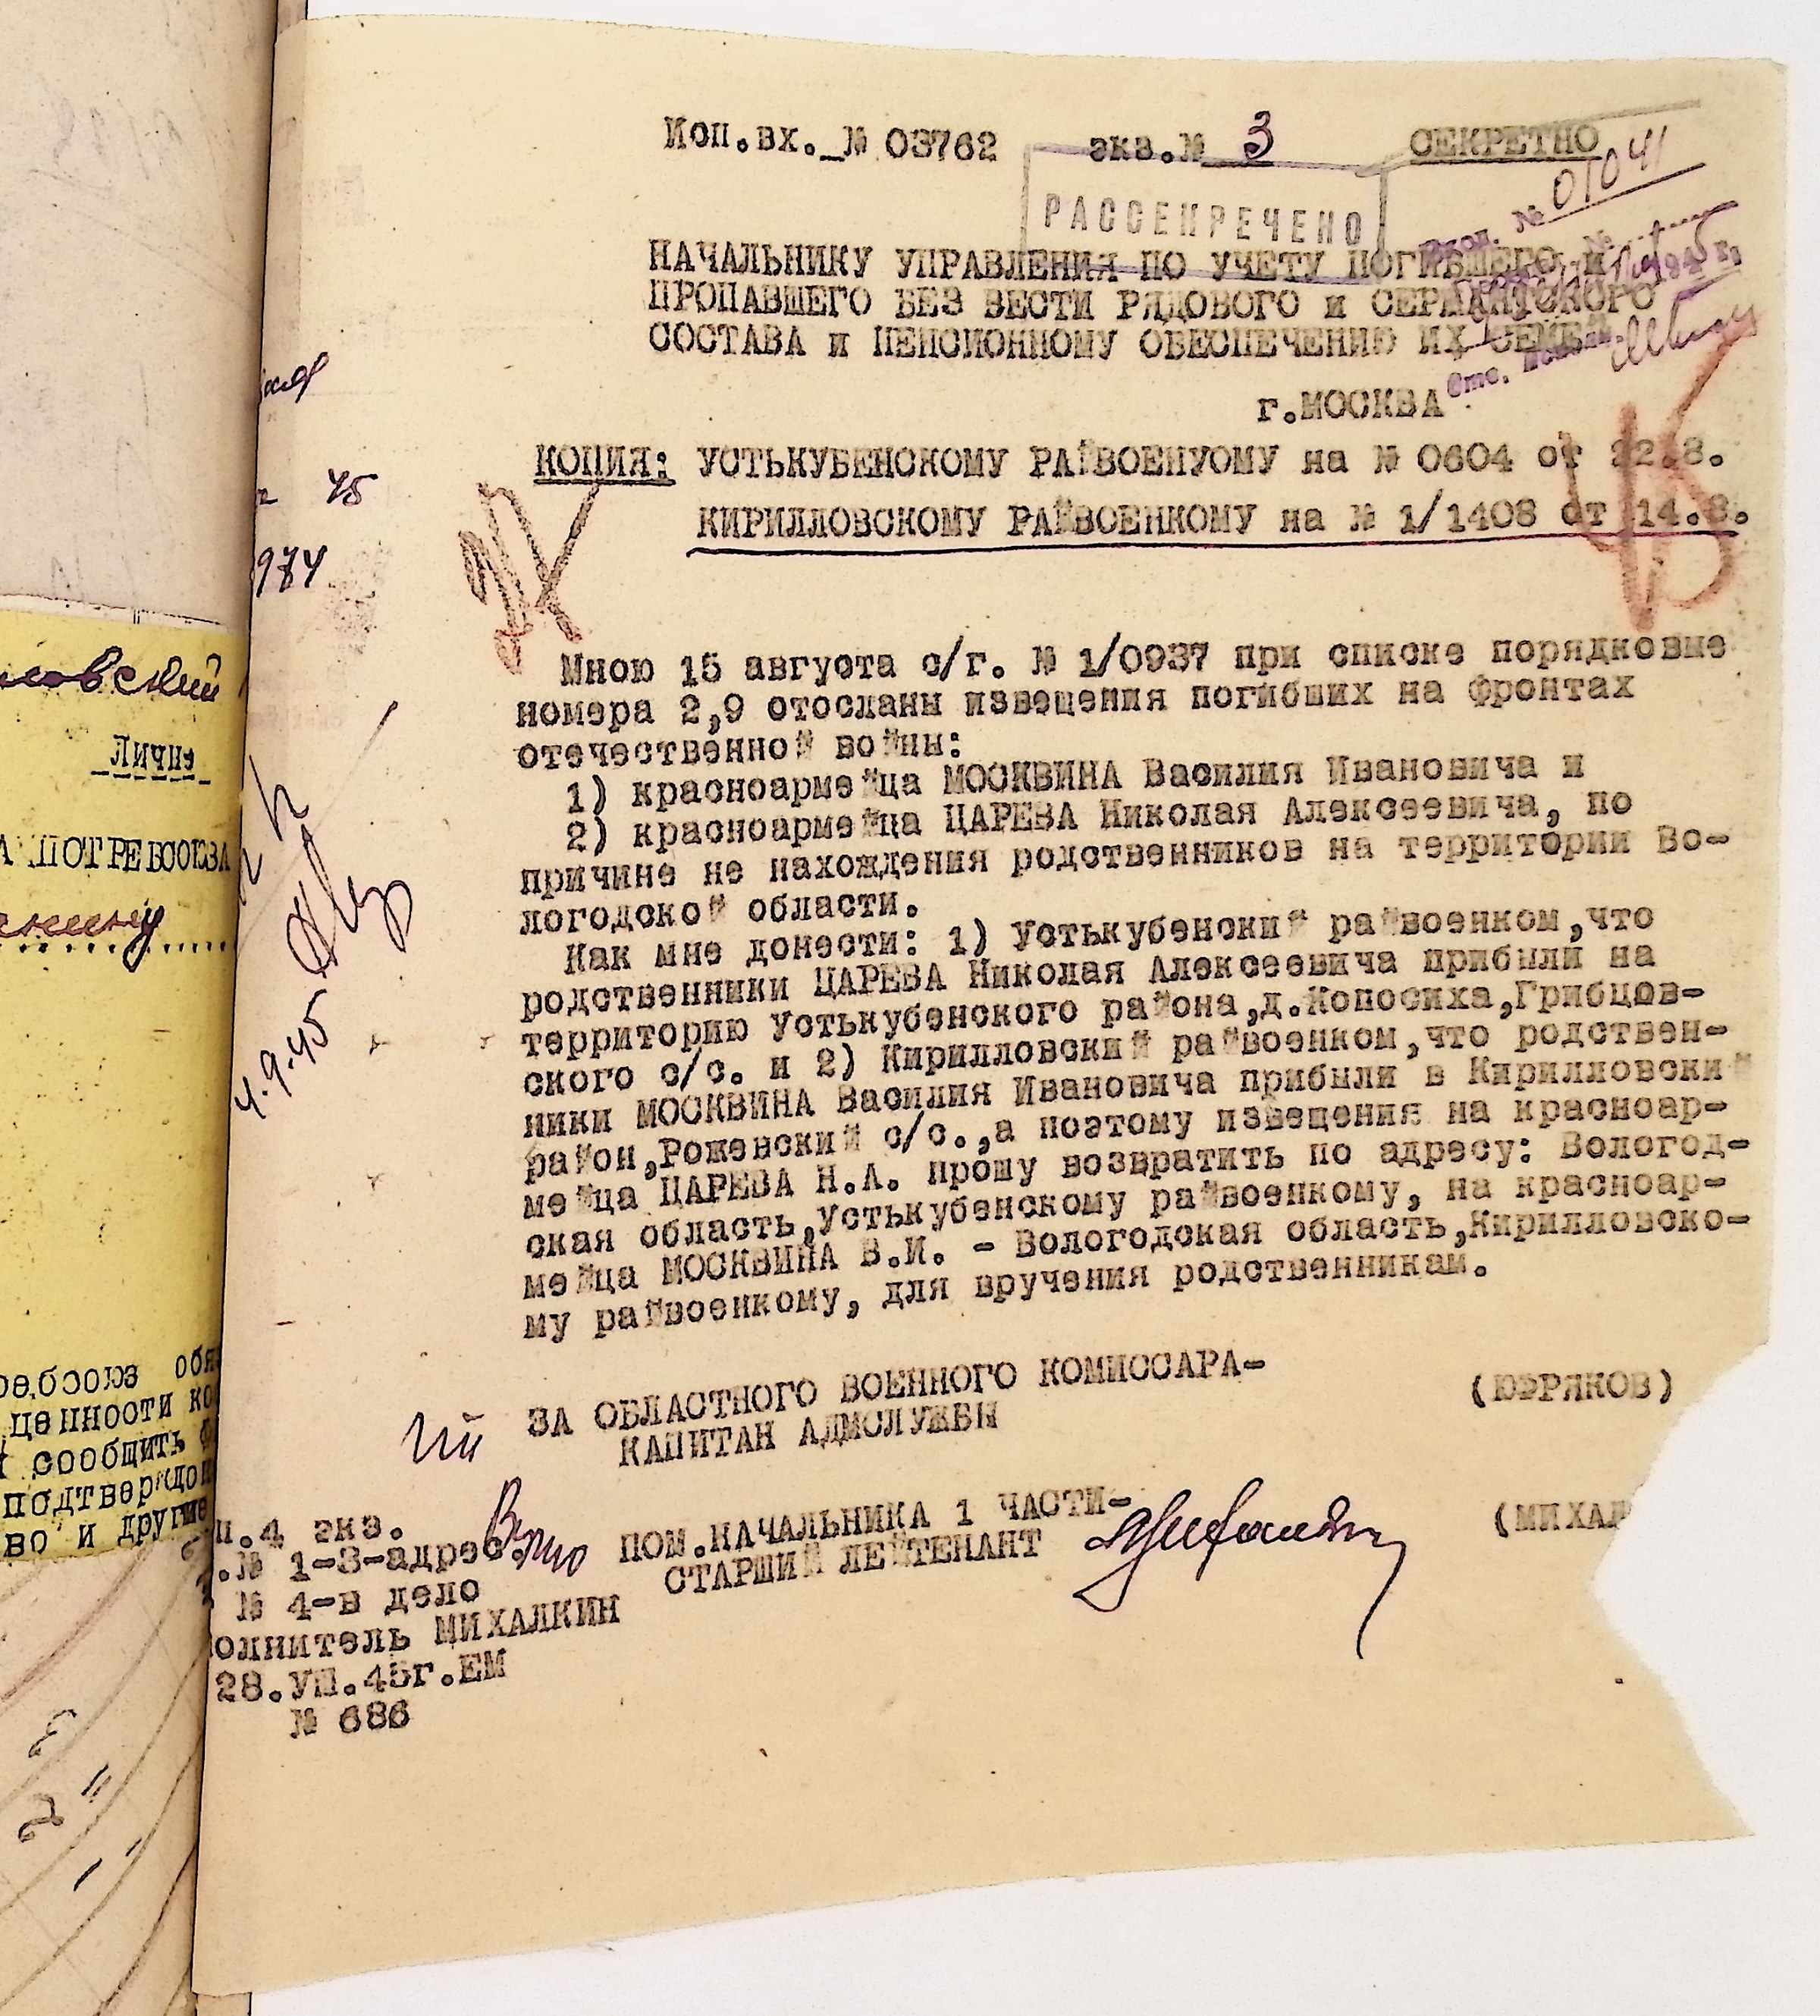 Исп.вх._№ 03762 экз.№ 3 СЕКРЕТНО
РАССЕКРЕЧЕНО
№ 01041
НАЧАЛЬНИКУ УПРАВЛЕНИЯ ПО УЧЕТУ ПОГИБШЕГО И
ПРОПАВШЕГО БЕЗ ВЕСТИ РЯДОВОГО и СЕРЖАНТСКОГО
СОСТАВА и ПЕНСИОННОМУ ОБЕСПЕЧЕНИЮ ИХ СЕМЕЙ
г.МОСКВА
КОПИЯ: УСТЬКУБЕНСКОМУ РАЙВОЕНУОМУ на № 0604 от 22.8.
КИРИЛЛОВСКОМУ РАЙВОЕНКОМУ на № 1/1408 от 14.8.
45
Мною 15 августа с/г. № 1/0937 при списке порядковые
номера 2,9 отосланы извещения погибших на фронтах
отечественной войны:
1) красноармейца МОСКВИНА Василия Ивановича и
2) красноармейца ЦАРЕВА Николая Алексеевича, по
причине не нахождения родственников на территории Во-
логодской области.
Как мне донести: 1) Устькубенский райвоенком,что
родственники ЦАРЕВА Николая Алексеевича прибыли на
территорию Устькубенского района,д.Копосиха,Грибцов-
ского с/с. и 2) Кирилловский райвоенком,что родствен-
ники МОСКВИНА Василия Ивановича прибыли в Кирилловский
район,Роженский с/с.,а поэтому извещения на красноар-
мейца ЦАРЕВА Н.А. прошу возвратить по адресу: Вологод-
ская область,Устькубенскому райвоенкому, на красноар-
мейца МОСКВИНА В.И. - Вологодская область,Кирилловско-
му райвоенкому, для вручения родственникам.
4.9.45
ЗА ОБЛАСТНОГО ВОЕННОГО КОМИССАРА-
КАПИТАН АДМСЛУЖБЫ (ЮФРЯКОВ)
ПОМ.НАЧАЛЬНИКА 1 ЧАСТИ-
СТАРШИЙ ЛЕЙТЕНАНТ (МИХАЛ
п.4 экз.
.№ 1-3-адрес.
№ 4-в дело
олнитель МИХАЛКИН
28.УШ.45г.ЕМ
№ 686
45
974
Лично
А ПОТРЕБСОЮЗА
ребсоюз обя
ценности ко
сообщить
подтвержде
во и другие